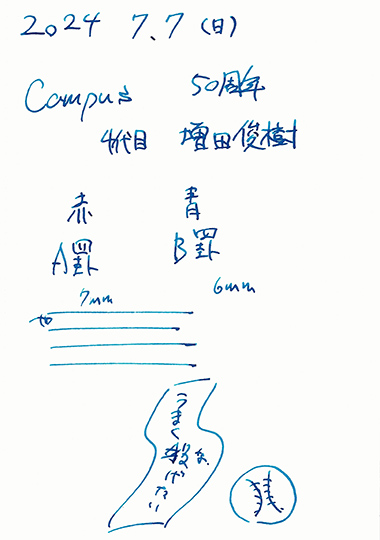 2024 7.7 (日)
Campus 50周年
4代目 増田俊樹
赤 青
A罫 B罫
7mm 6mm
うまく